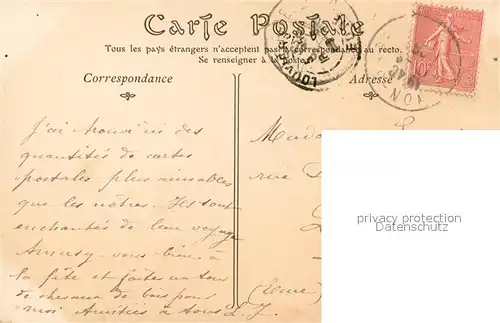 Carte Postale
Tous les pays étrangers n'acceptent pas la correspondance au recto.
Se renseigner à la Poste
Correspondance
Adresse
LOUVIERS
10
J'ai trouvé ici des
quantités de cartes
postales plus aimables
que les nôtres. Ils sont
enchantés de leur voyage
Amusez-vous bien à
la fête et faites un tour
de chevaux de bois pour
moi Amitiés à tous L. J.
Mada
rue
L
(Eure)
privacy protection
Datenschutz